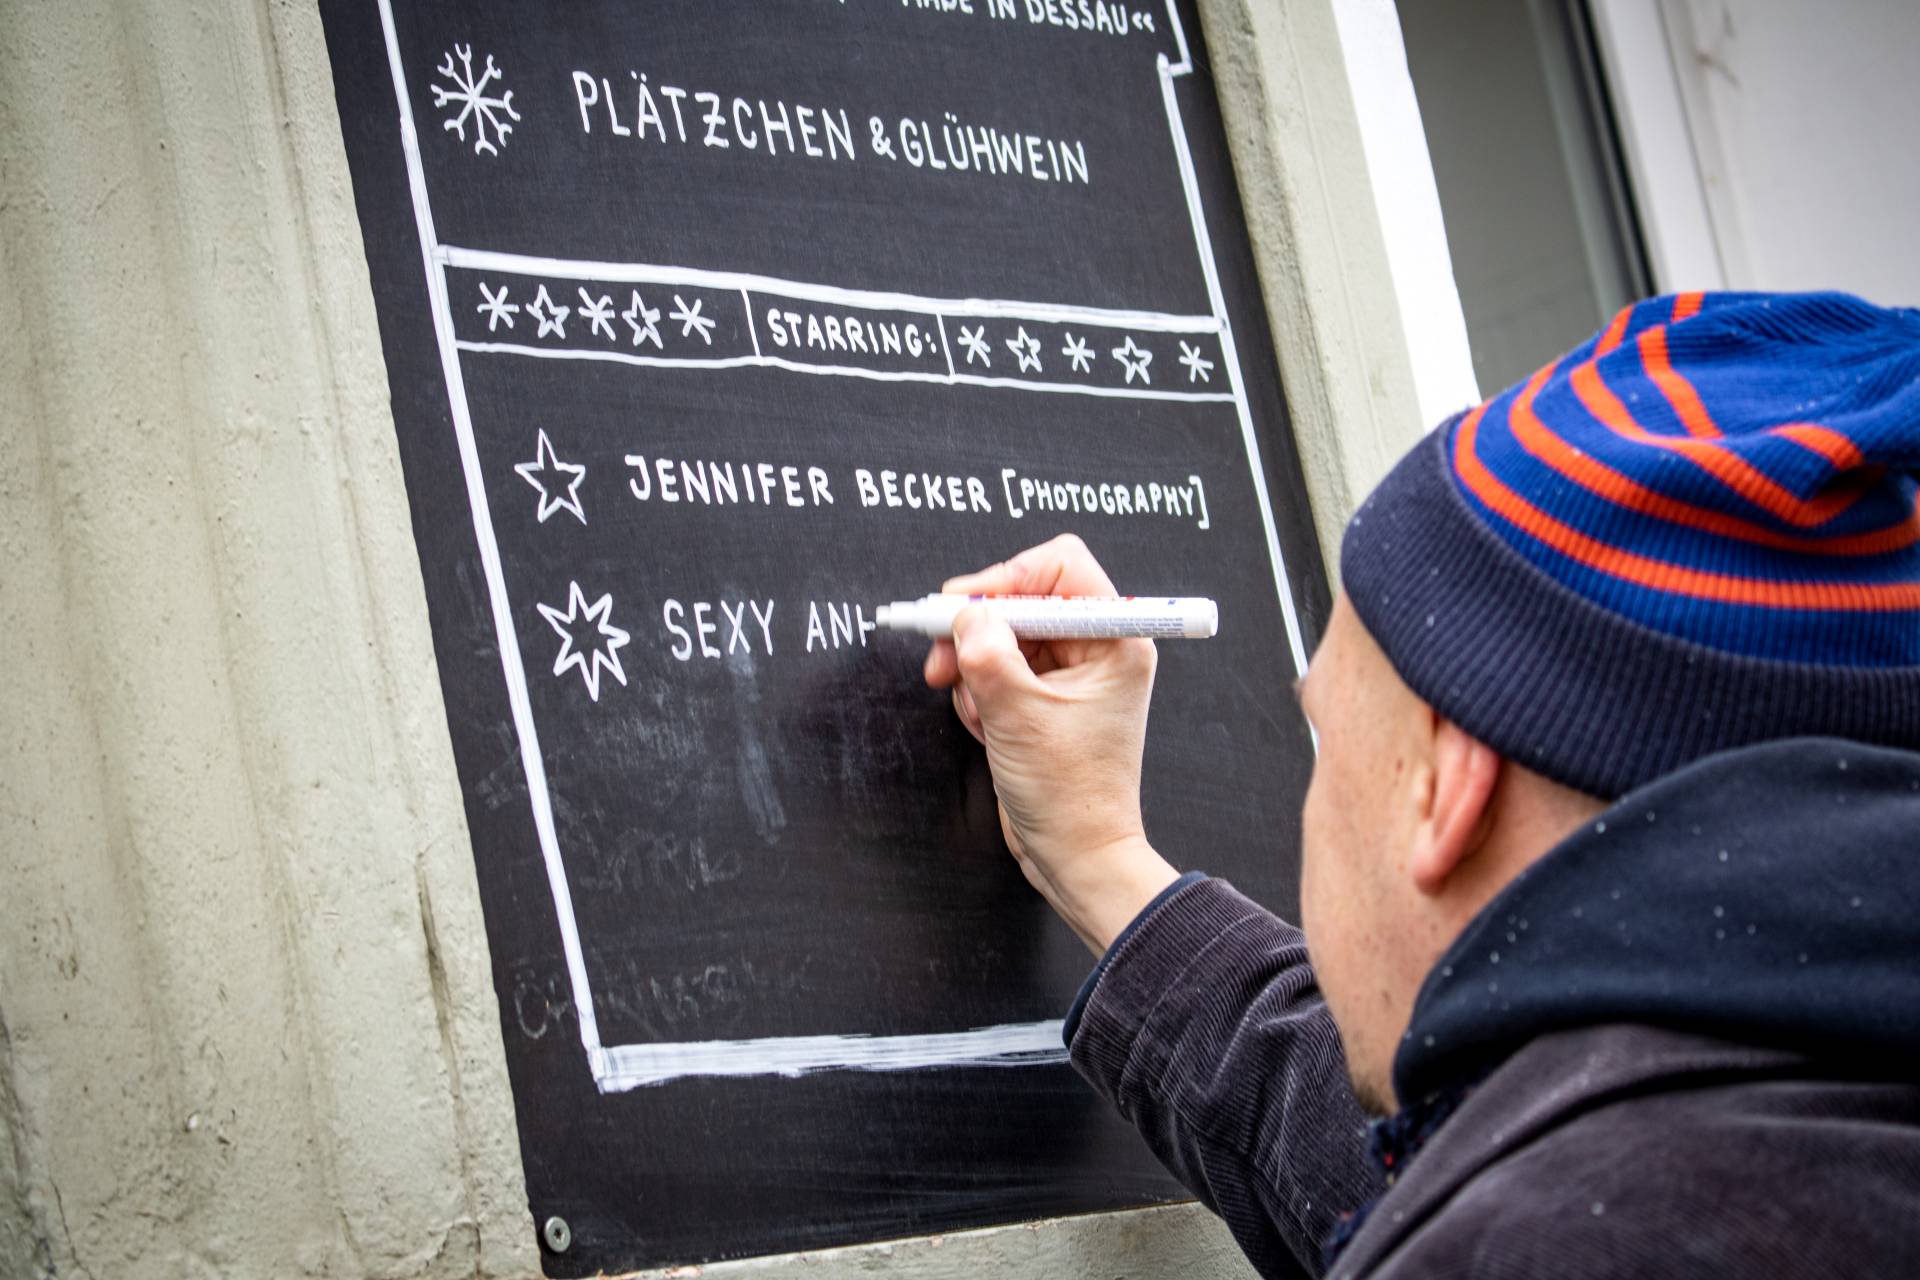 MADE IN DESSAU««
PLÄTZCHEN & GLÜHWEIN
STARRING:
JENNIFER BECKER [PHOTOGRAPHY]
SEXY